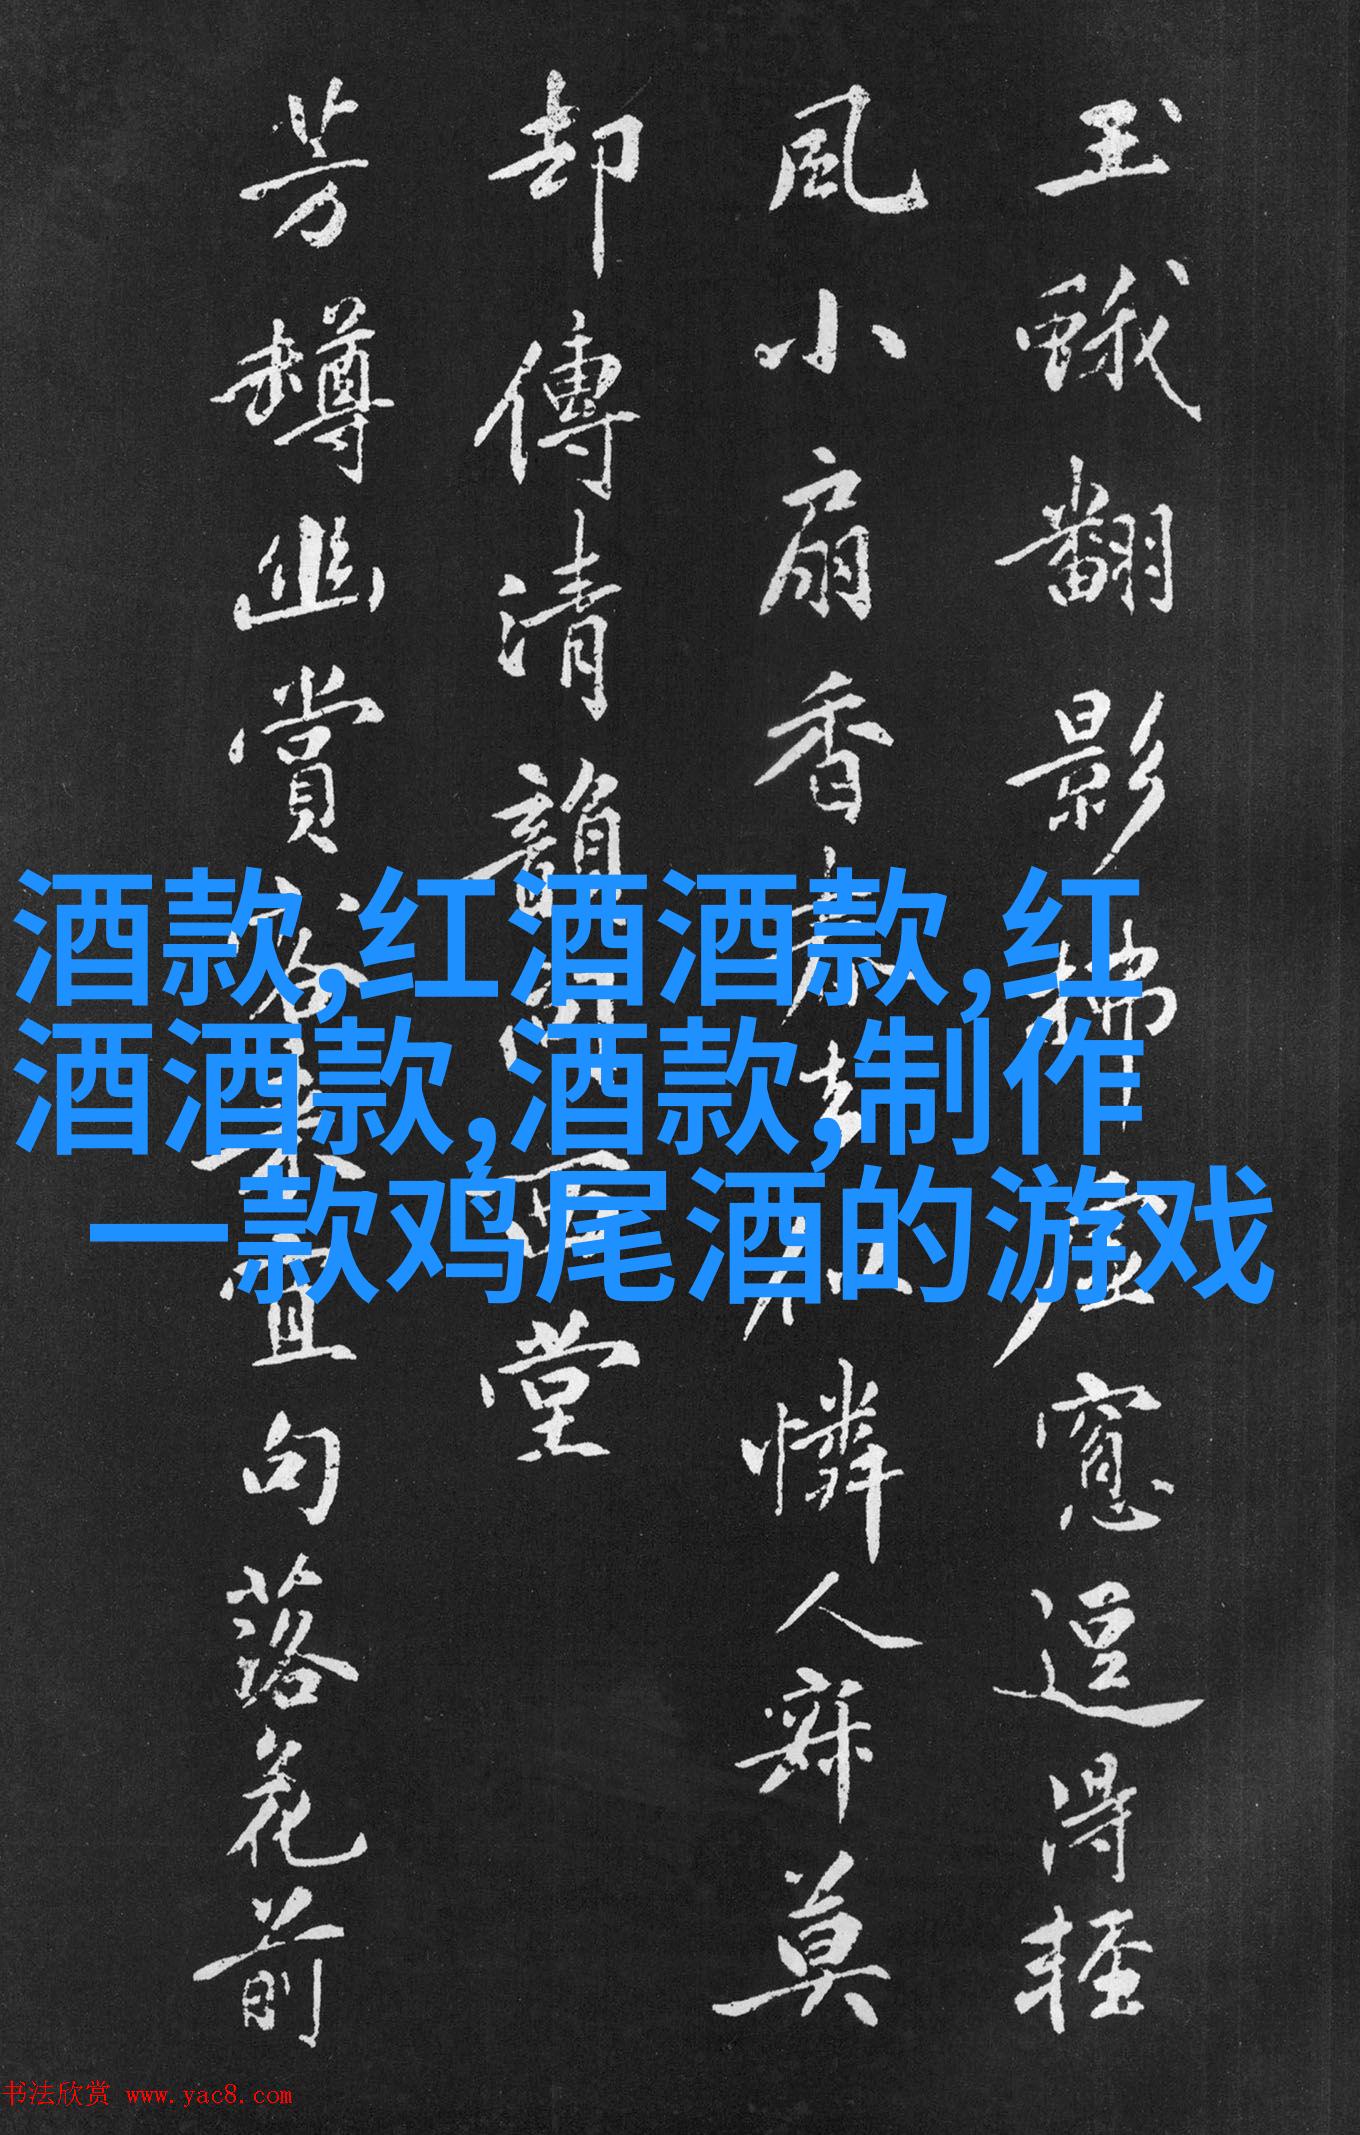 玉蛾翻影拂虛窓逗得輕
風小扇香憐人寐莫
却傳清韻西堂
芳樽幽賞宜句落花前
酒款,红酒酒款,红
酒酒款,酒款,制作
一款鸡尾酒的游戏
书法欣赏 www.yac8.com